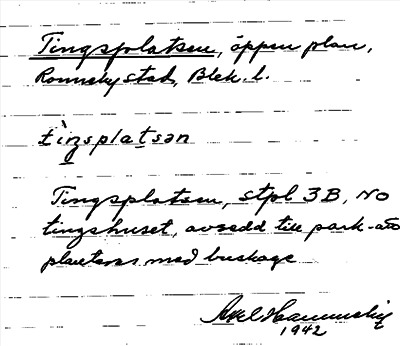 Tingsplatsen, öppen plan,
Ronneby stad, Blek. l.
tìŋsplatsən
Tingsplatsen, stpl 3B, NO
tingshuset, avsedd till park -
planteras med buskage
Axel
1942